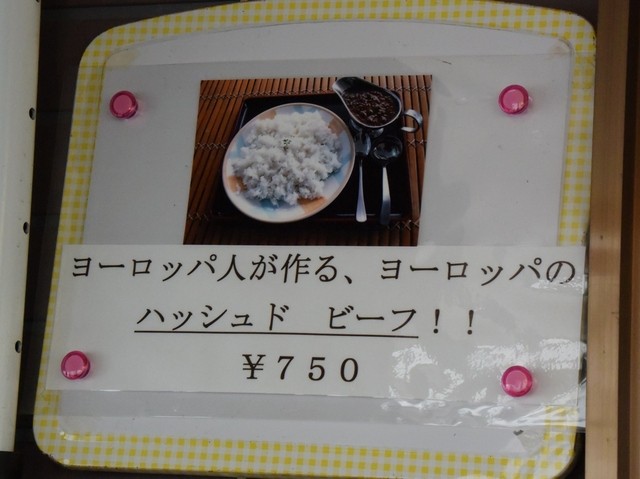 ヨーロッパ人が作る、ヨーロッパの
ハッシュド　ビーフ！！
￥７５０